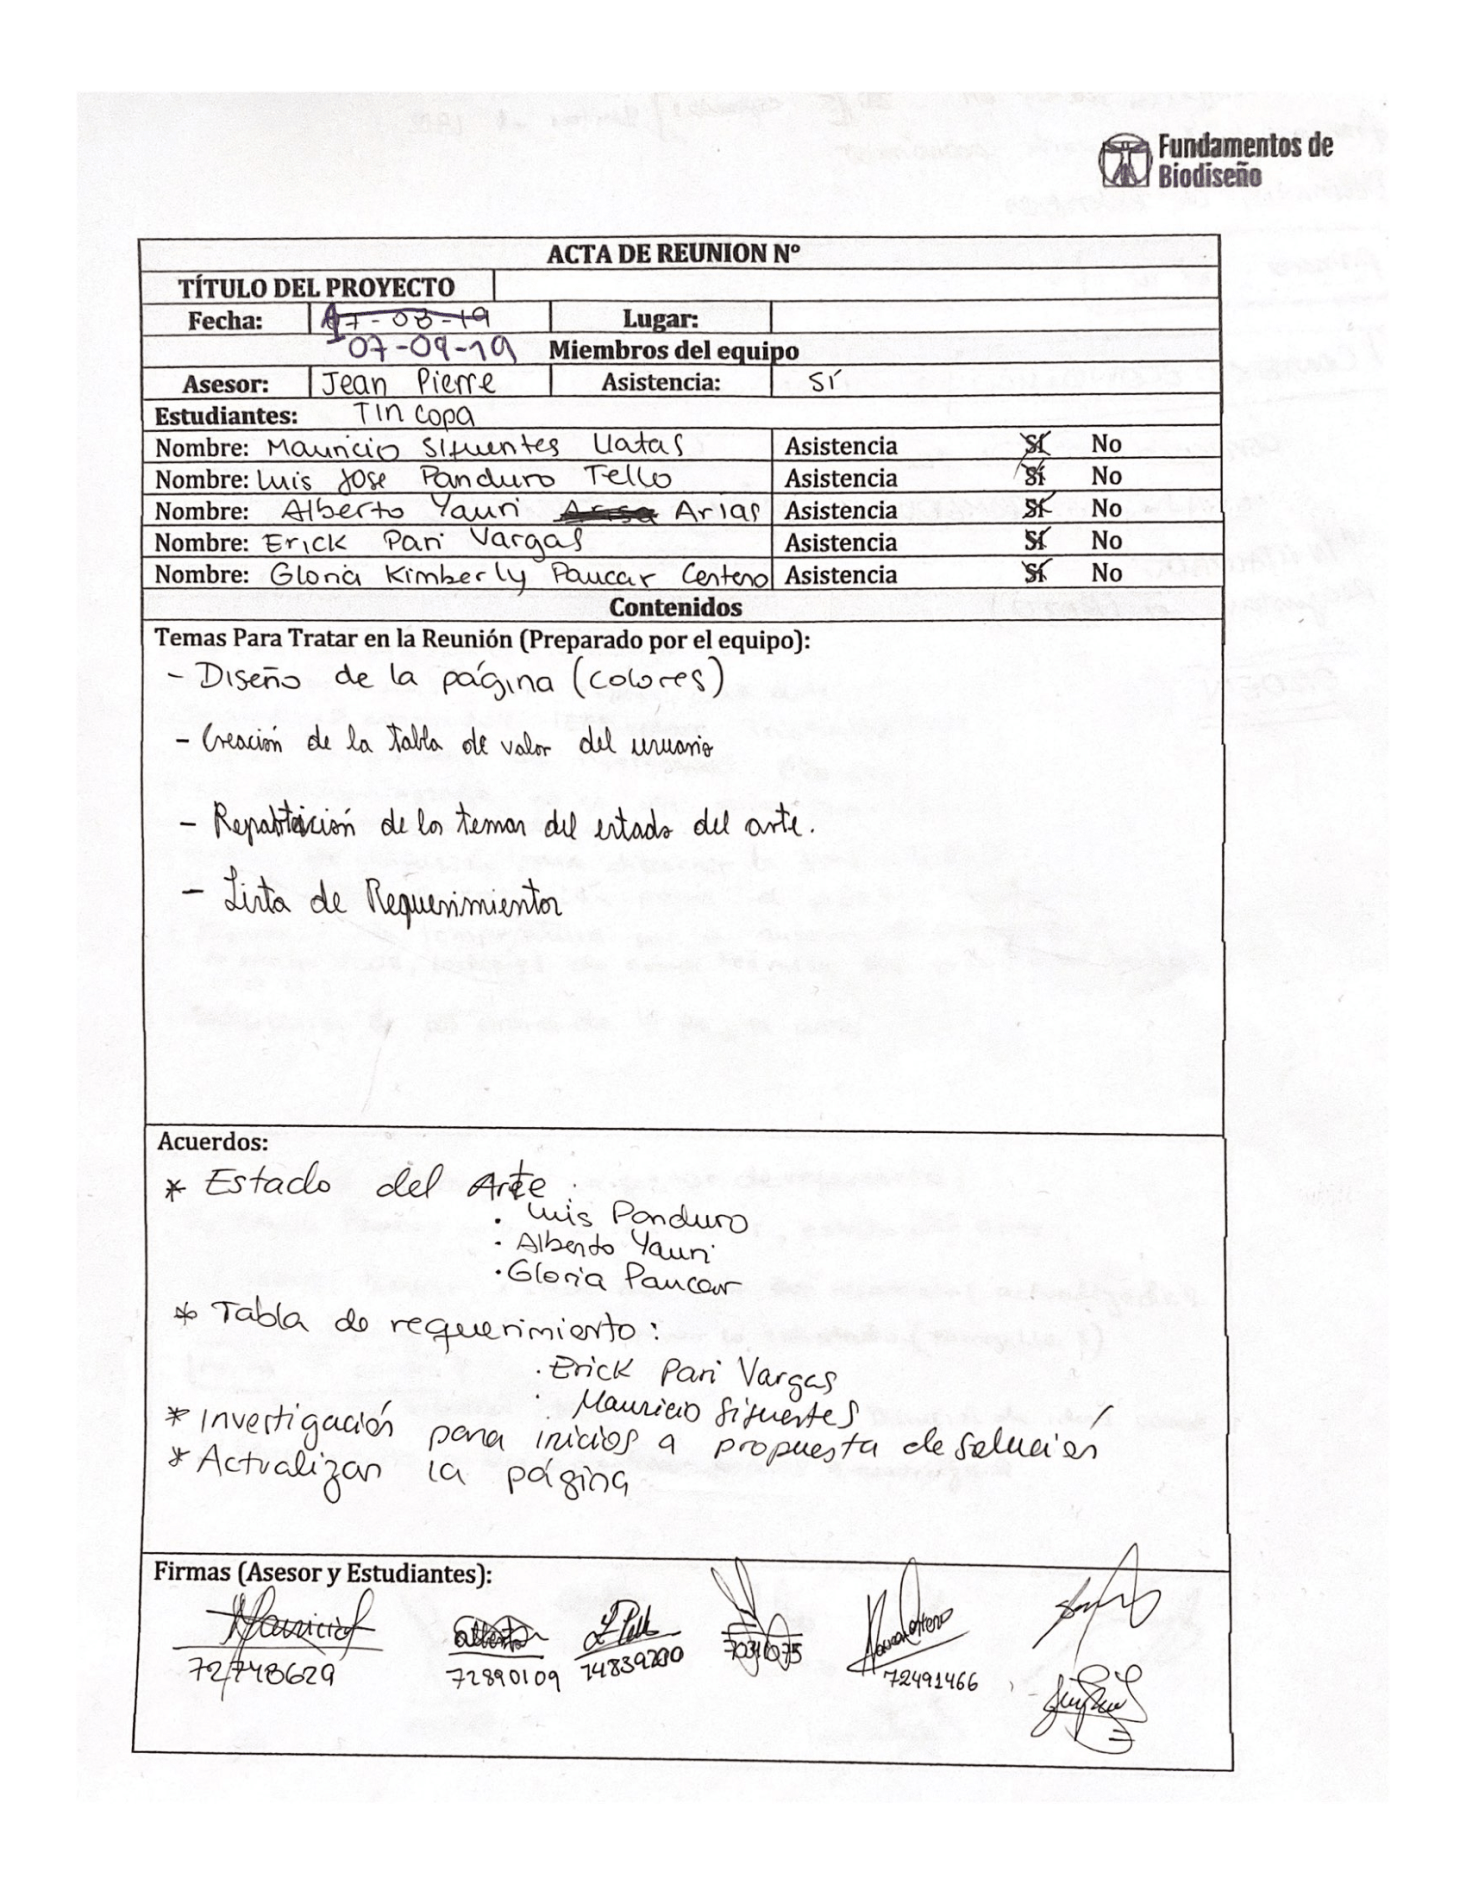 Fundamentos de
Biodiseño
ACTA DE REUNION Nº
TÍTULO DEL PROYECTO
Fecha: 07-08-19 Lugar:
07-09-19 Miembros del equipo
Asesor: Jean Pierre Asistencia: Sí
Estudiantes: Tincopa
Nombre: Mauricio Sifuentes Llatas Asistencia Sí No
Nombre: Luis Jose Panduro Tello Asistencia Sí No
Nombre: Alberto Yauri Arias Asistencia Sí No
Nombre: Erick Pari Vargas Asistencia Sí No
Nombre: Gloria Kimberly Paucar Centeno Asistencia Sí No
Contenidos
Temas Para Tratar en la Reunión (Preparado por el equipo):
- Diseño de la página (colores)
- Creación de la tabla de valor del usuario
- Repartición de los temas del estado del arte.
- Lista de Requerimientos
Acuerdos:
* Estado del Arte :
· Luis Panduro
· Alberto Yauri
· Gloria Paucar
* Tabla de requerimiento :
· Erick Pari Vargas
· Mauricio Sifuentes
* Investigación para inicios a propuesta de solución
* Actualizar la página
Firmas (Asesor y Estudiantes):
Mauricio
alberto
72748629 72890109 74839200 7031075 72491466